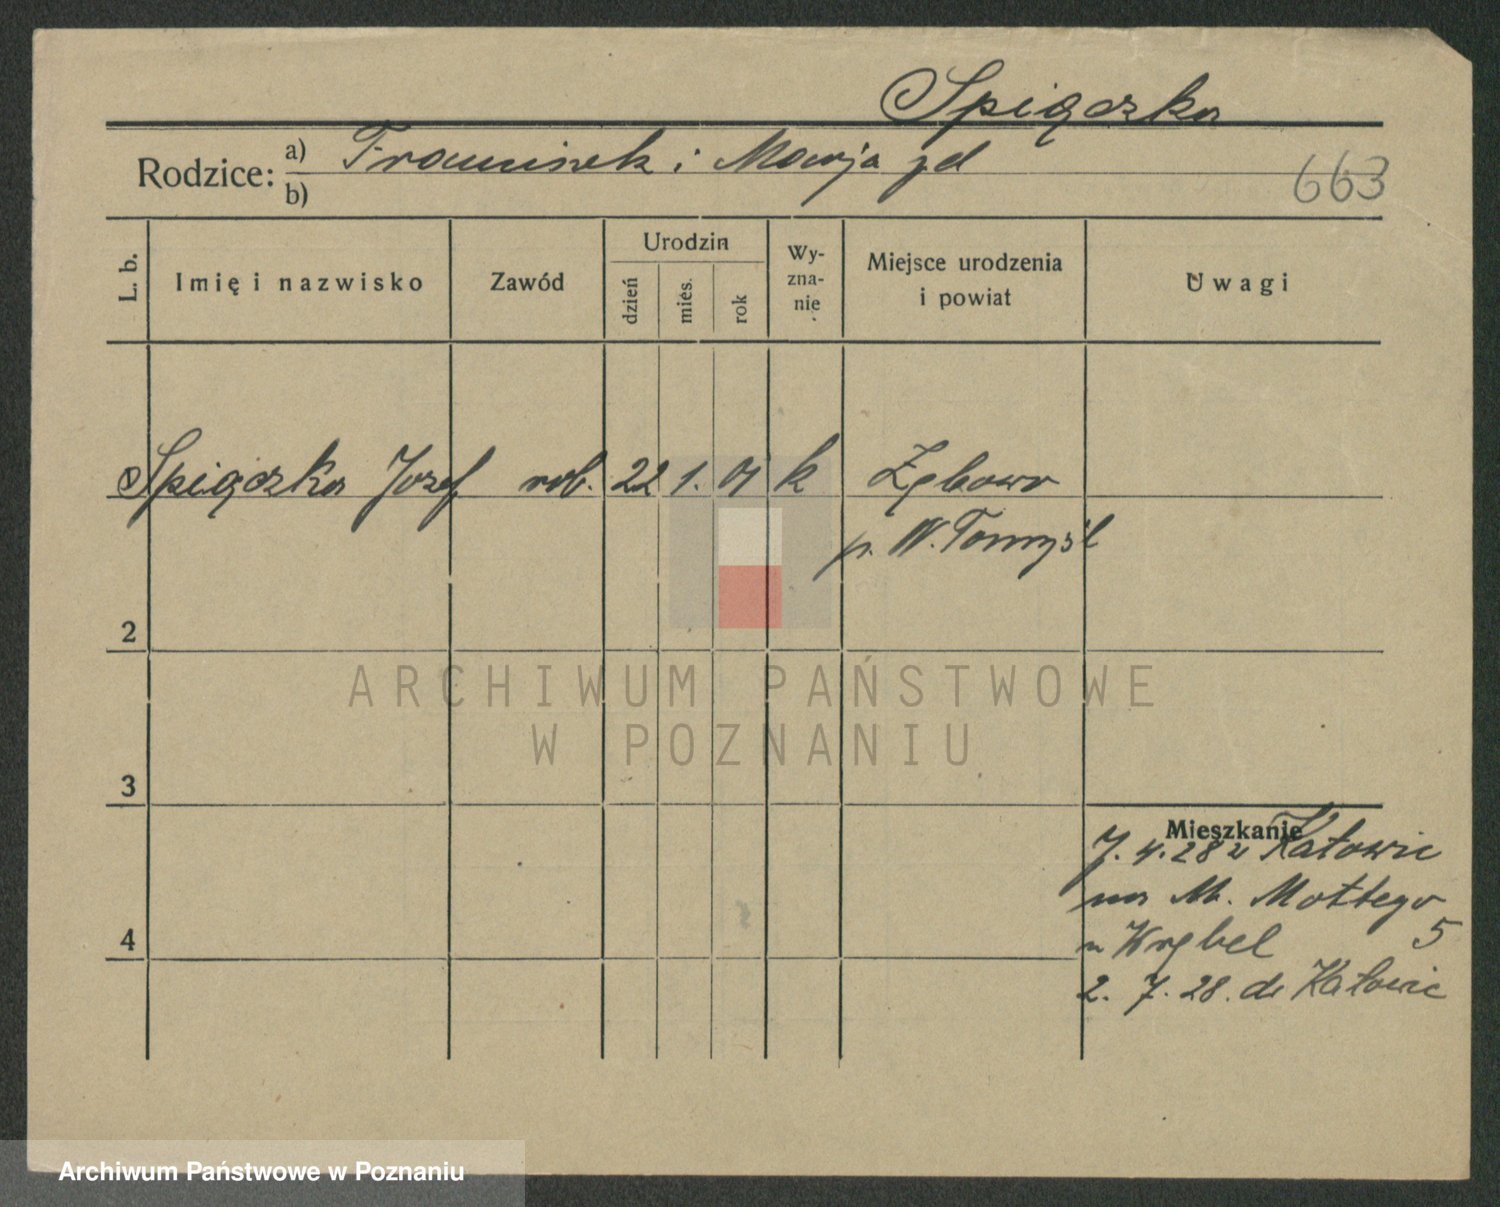 Spiączka
Rodzice: a) Franciszek i Marja jd
b)
663
L. b.
Imię i nazwisko
Zawód
Urodzin
dzień
mies.
rok
Wy-
zna-
nie
Miejsce urodzenia
i powiat
Uwagi
Spiączka Józef rob. 22 1. 01 k Zębowo
p. N. Tomyśl
2
3
4
Mieszkanie
7. 4. 28 z Katowic
na M. Mottego
5
u Wrębel
2. 7. 28. do Katowic
ARCHIWUM PAŃSTWOWE
W POZNANIU
Archiwum Państwowe w Poznaniu